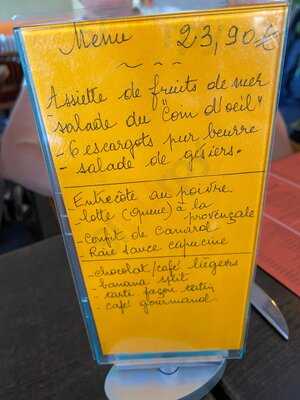 Menu 23,90€
Assiette de fruits de mer
salade du "Com d'oeil"
- 6 escargots pur beurre
- salade de gésiers.
Entrecôte au poivre
- lotte (Queue) à la
provençale
- Confit de canard
Raie sauce capucine
- chocolat/café liégeois
- banana split
- tarte façon tatin
- café gourmand